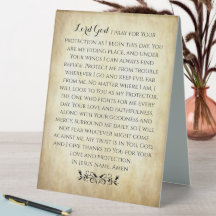 Lord God I pray for Your
protection as I begin this day. You
are my hiding place, and under
Your wings I can always find
refuge. Protect me from trouble
wherever I go and keep evil far
from me. No matter where I am, I
will look to You as my Protector,
the One who fights for me every
day. Your love and faithfulness,
along with Your goodness and
mercy, surround me daily, so I will
not fear whatever might come
against me. My trust is in You, God,
and I give thanks to You for Your
love and protection
in Jesus name, Amen